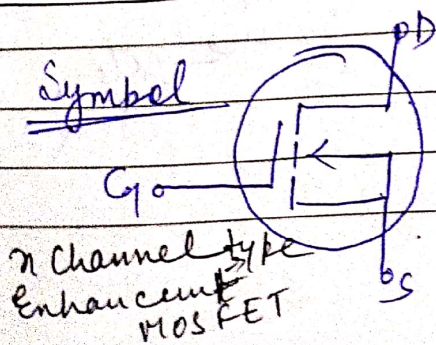 D
Symbol
G
S
n Channel type
Enhancement
MOSFET